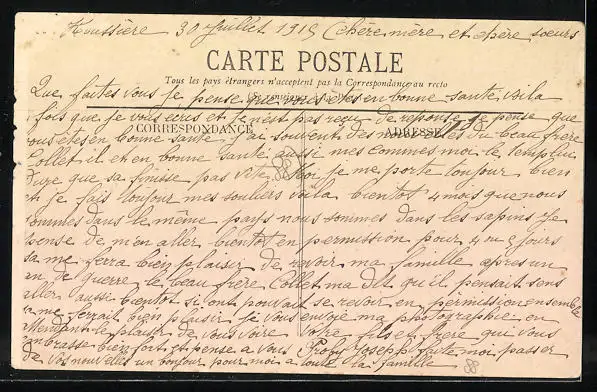 Houssière 30 Juillet 1915 Chère mère et chère soeurs
CARTE POSTALE
Tous les pays étrangers n'acceptent pas la Correspondance au recto
Que faites vous je pense que vous êtes en bonne santé voila
fois que je vous ecris et je n'est pas recu de reponse je pense que
CORRESPONDANCE
ADRESSE
vous etes en bonne santé j'ai souvent des nouvelles du beau frère
Collet il et en bonne santé aussi mes commes moi le temp lui
dure que sa finisse pas vite moi je me porte toujour bien
et je fais toujour mes souliers voila bientot 4 mois que nous
sommes dans le même pays nous sommes dans les sapins je
pense de m'en aller bientot en permission pour 4 ou 5 jours
sa me ferra bien plaisir de revoir ma famille apres un
an de guerre le beau frère Collet ma dit qu'il pensait sens
aller aussi bientot si ont pouvait se revoir en permission ensemble
sa me ferrait bien plaisir je vous envoie ma photographie en
attendant le plaisir de vous voire Votre fils et frère qui vous
embrasse bien fort et pense a vous Proby Joseph faite moi passer
de vos nouvelles un bonjour pour moi a toute la famille